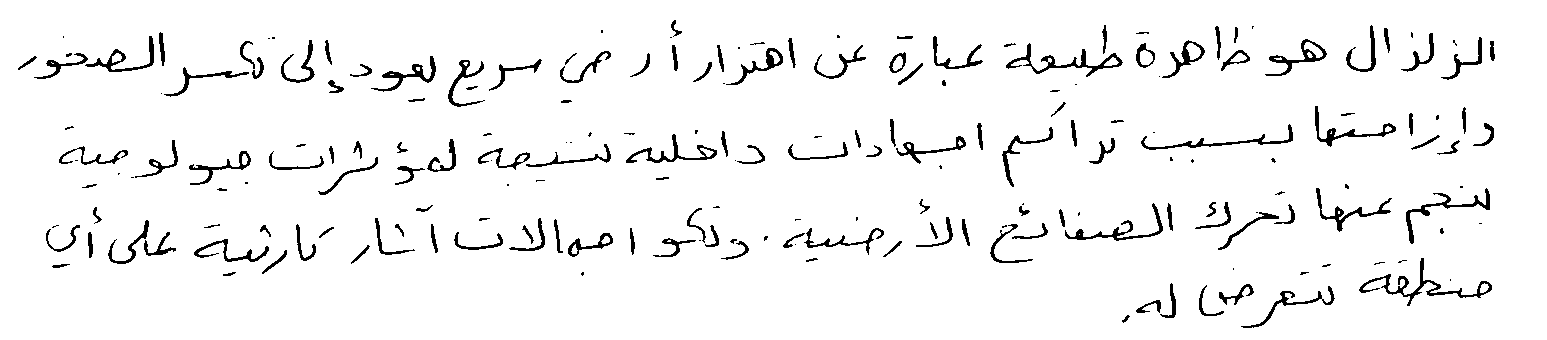 الزلزال هو ظاهرة طبيعة عبارة عن اهتزاز أرضي سريع يعود إلى تكسر الصخور
وإزاحتها بسبب تراكم اجهادات داخلية نتيجة لمؤثرات جيولوجية
ينجم عنها تحرك الصفائح الأرضية. آثار كارثية على أي
منطقة تتعرض له.